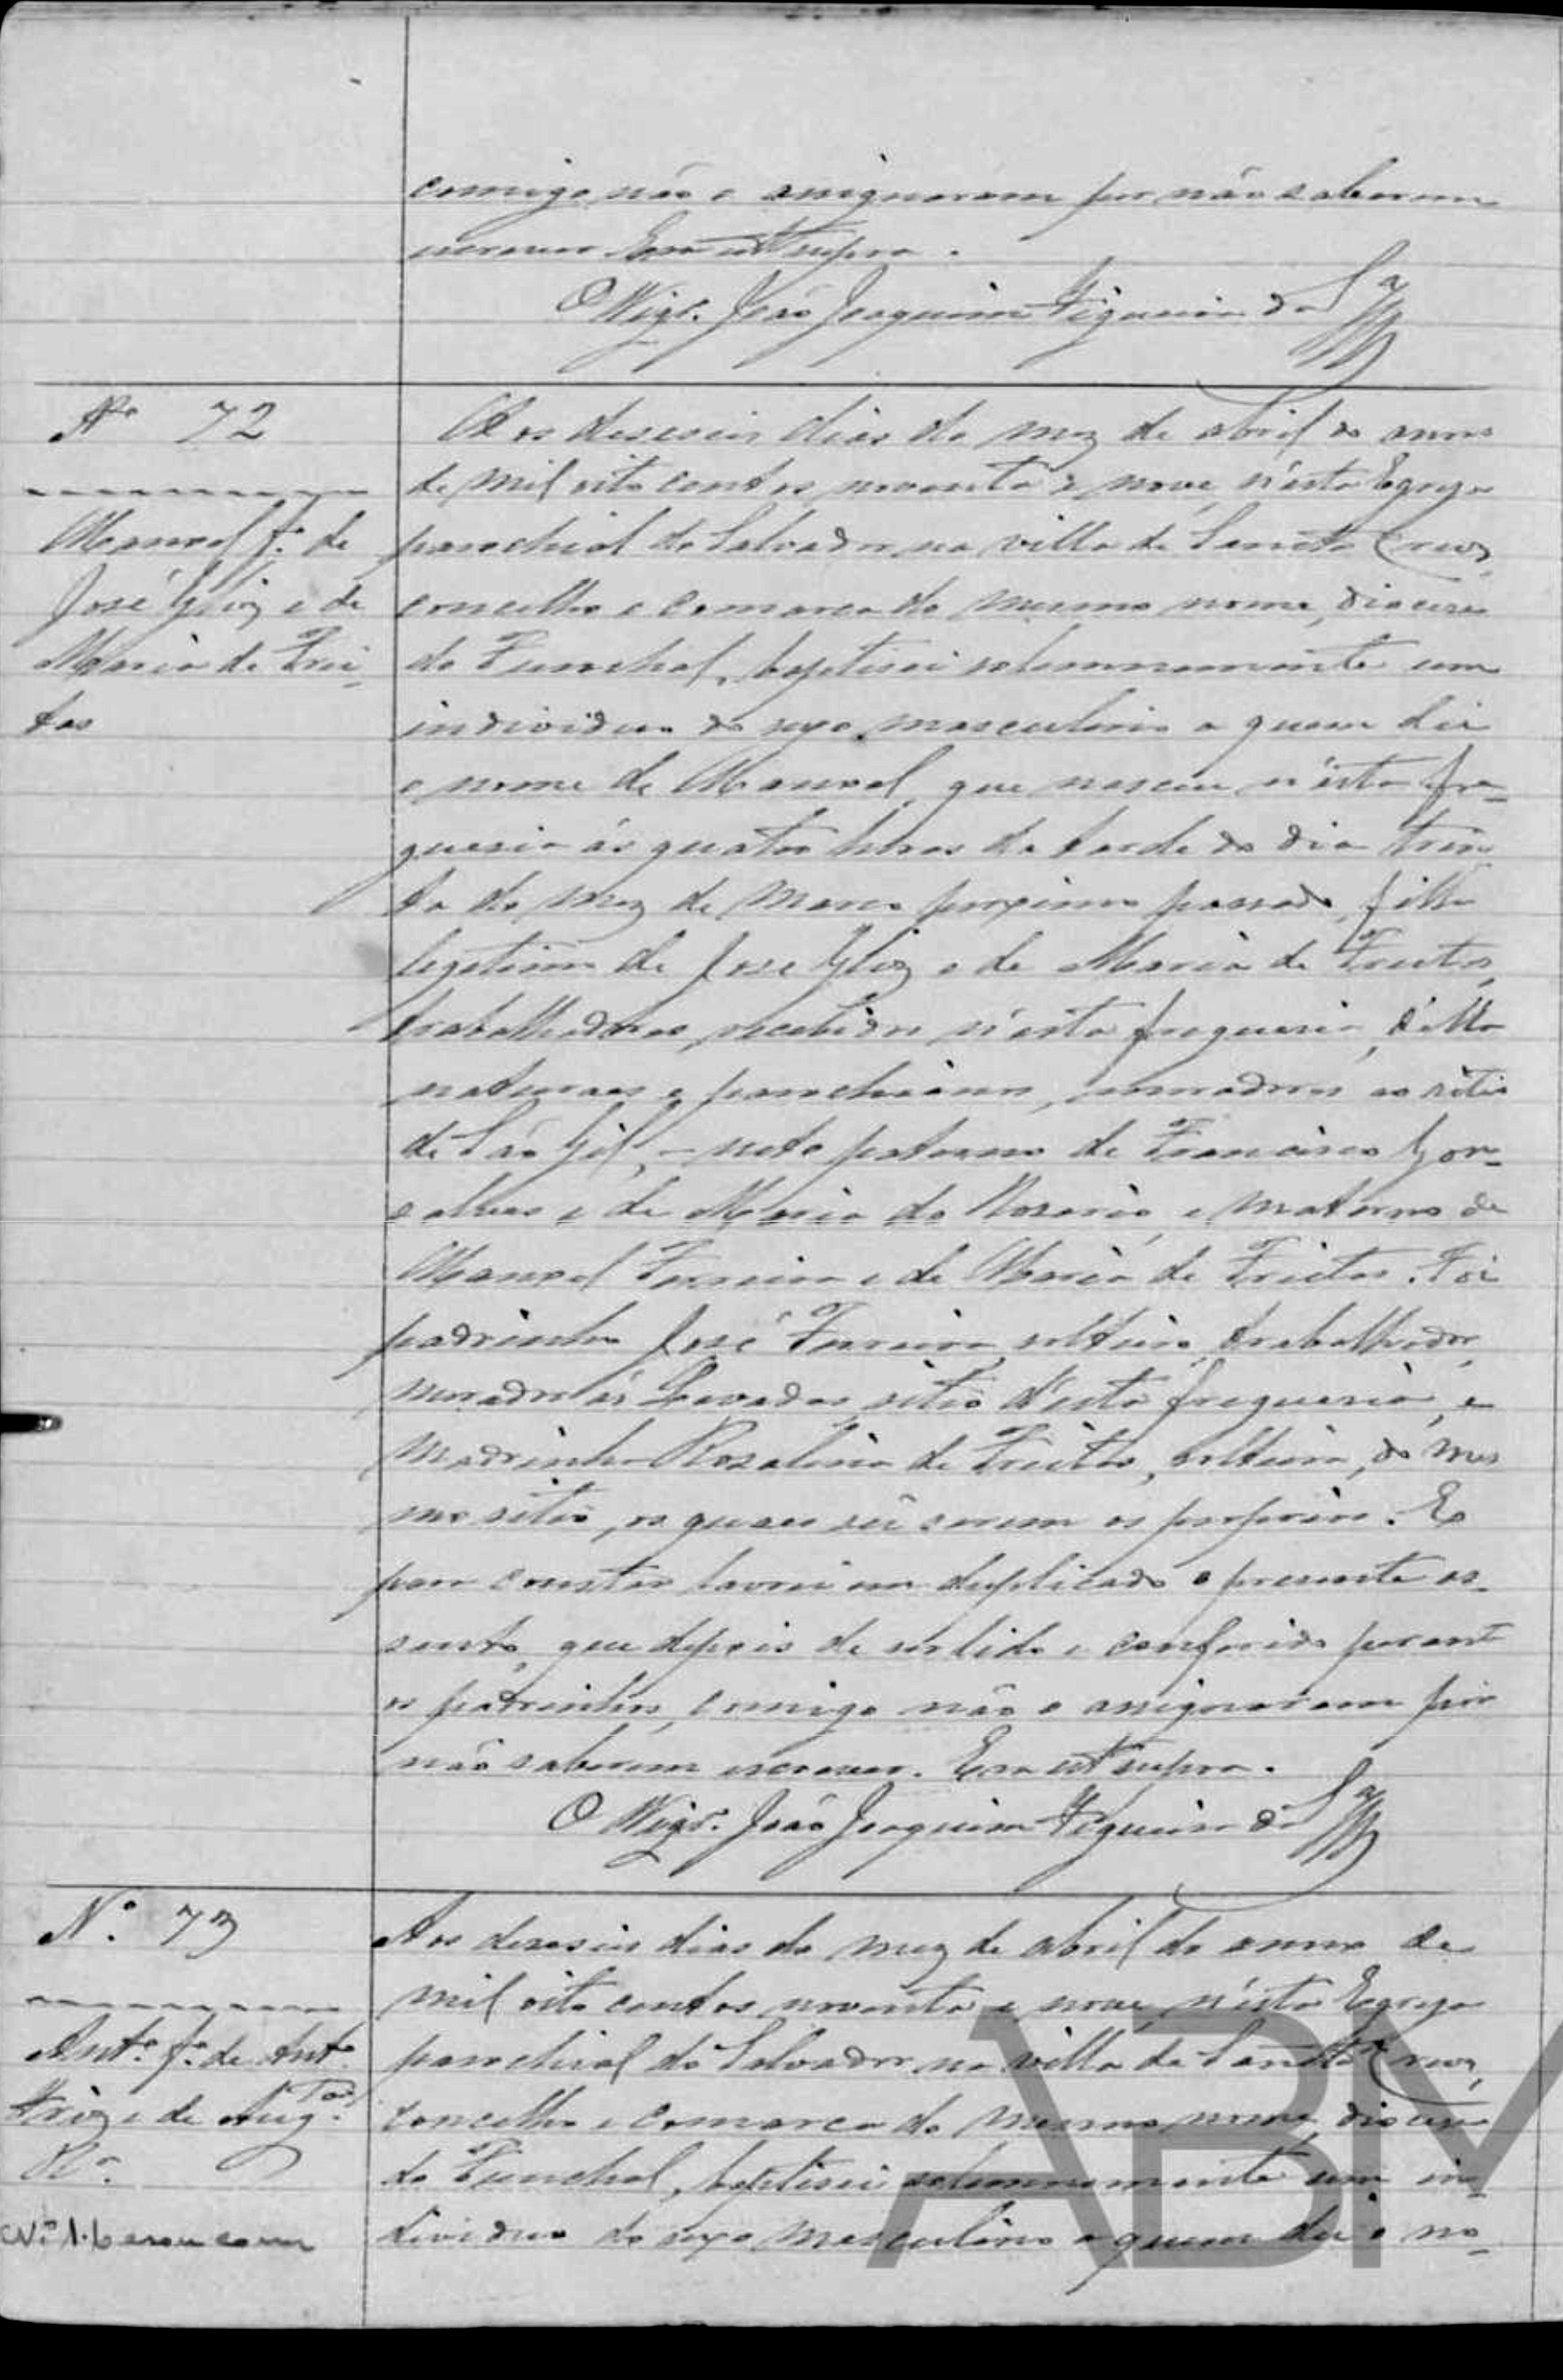 comigo não o assignaram por não saberem
escrever. Era ut supra.
O Vigr.º João Joaquim Figueira da
Nº 72
Manoel fº de
José Glz e de
Maria de Frei-
tas
Aos deseseis dias do mez de abril do anno
de mil oito centos noventa e nove, n'esta Egreja
parochial do Salvador na villa de Sancta Cruz,
concelho e comarca do mesmo nome, diocese
do Funchal, baptisei solemnemente um
individuo do sexo masculino a quem dei
o nome de Manoel, que nasceu n'esta fre-
guesia ás quatro horas da tarde do dia trin-
ta do mez de Março proximo passado, filho
legitimo de José Glz e de Maria de Freitas,
trabalhadores, recebidos n'esta freguesia, d'ella
naturaes e parochianos, moradores ao sitio
de São Gil, - neto paterno de Francisco Gon-
çalves e de Maria do Rosario, e materno de
Manoel Ferreira e de Maria de Freitas. Foi
padrinho José Ferreira, solteiro, trabalhador,
morador ás Levadas, sitio d'esta freguesia, e
madrinha Rosalina de Freitas, solteira, do mes
mo sitio, os quaes sei serem os proprios. E
para constar lavrei em duplicado o presente as-
sento, que depois de ser lido e conferido perante
os padrinhos, comigo não o assignaram por
não saberem escrever. Era ut supra.
O Vigr.º João Joaquim Figueira da
N.º 73
Ant.º f.º de Ant.º
e de Aug.ta
Aos deseseis dias do mez de abril do anno de
mil oito centos noventa e nove, n'esta Egreja
parochial do Salvador na villa de Sancta Cruz,
concelho e comarca do mesmo nome, diocese
do Funchal, baptisei solemnemente um in-
dividuo do sexo masculino a quem dei o no-
N.º 1. Casou com
ABM